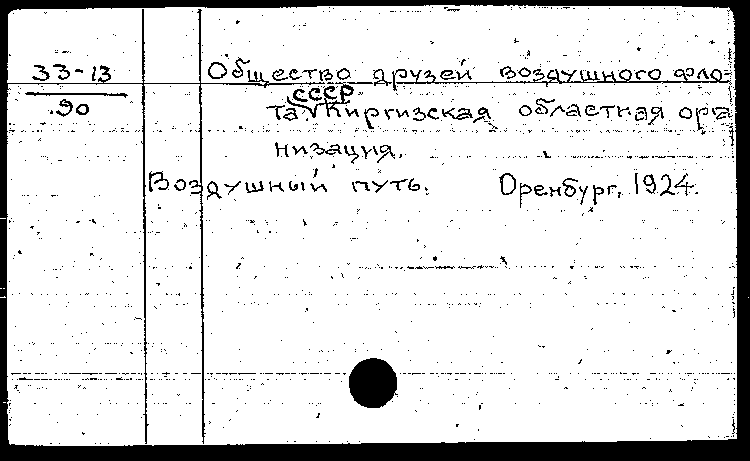 33-13
90
Общество друзей воздушного фло-
СССР
та Киргизская областная орга
низация.
Воздушный путь. Оренбург, 1924.